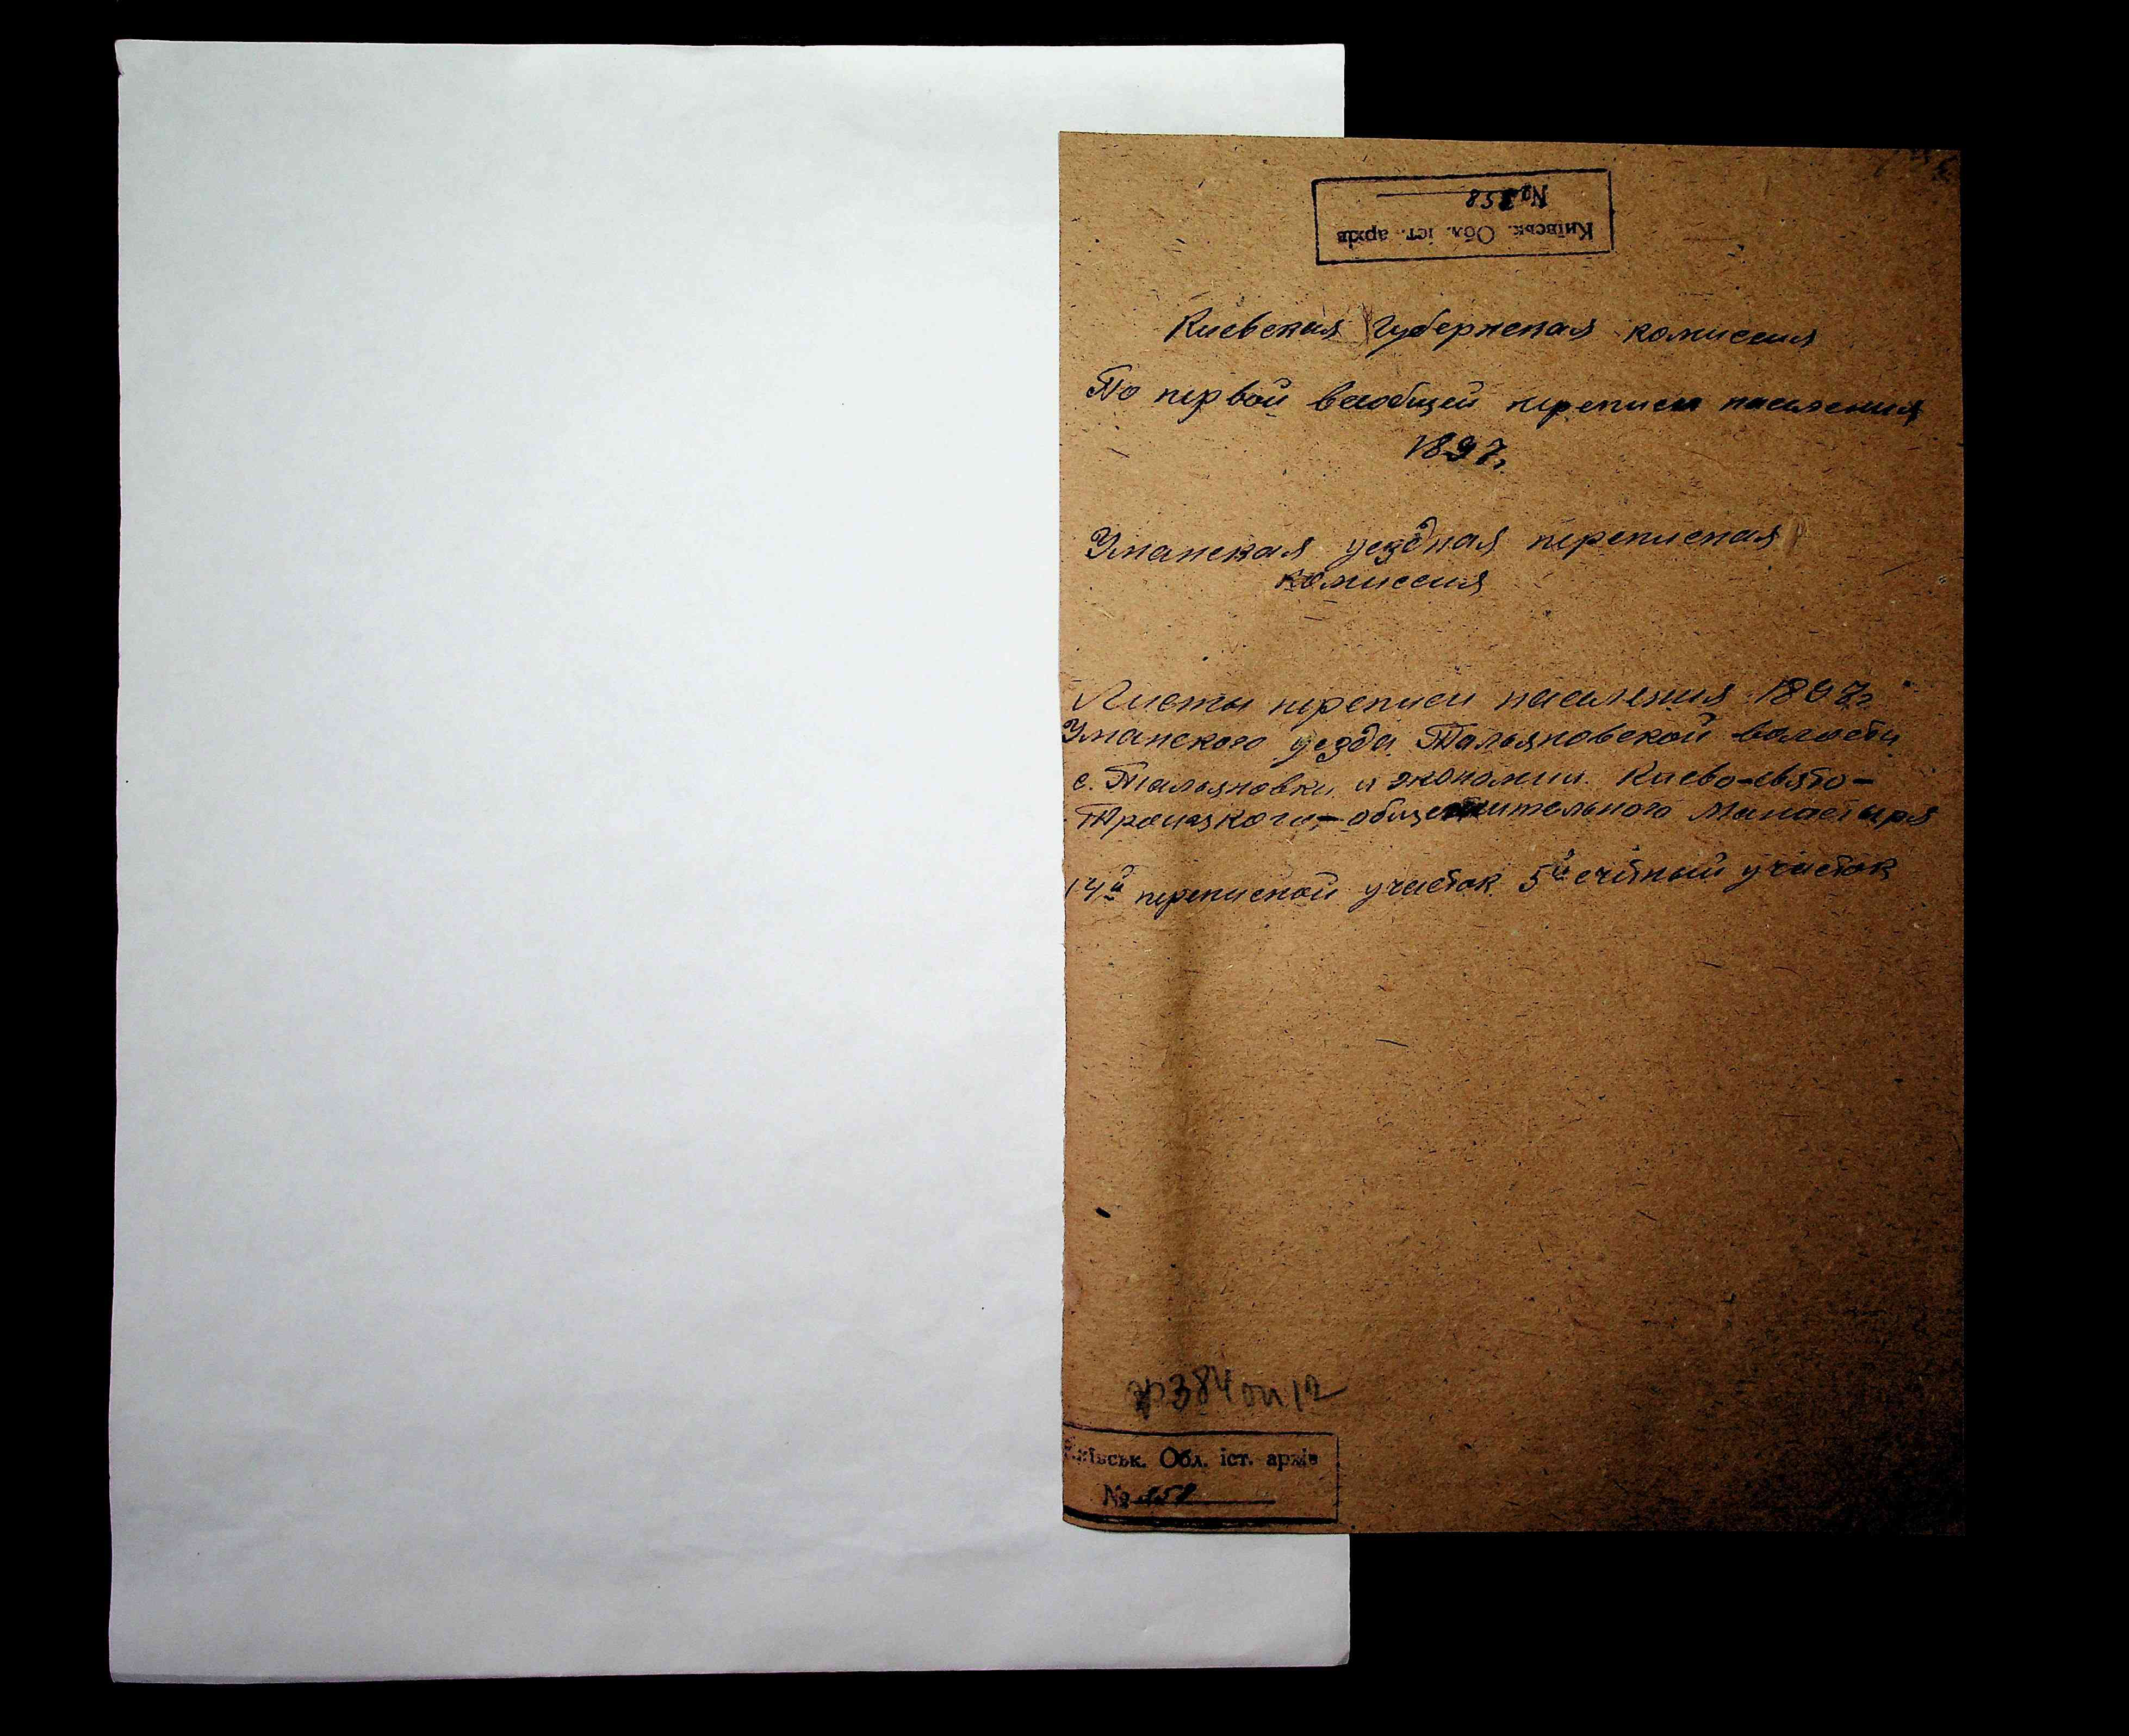 № 358
Київськ. Обл. іст. архів
Киевская Губернская комиссия
По первой всеобщей переписи населения
1897г.
Уманская уездная переписная
комиссия
Листы переписи населения 1897г.
Уманского уезда Тальяновской волости
с. Тальяновки и экономии Киево-свято-
Троицкого, общежительного Манастыря
14й переписной участок 5й счётный участок
ф384оп12
Київськ. Обл. іст. архів
№ 358